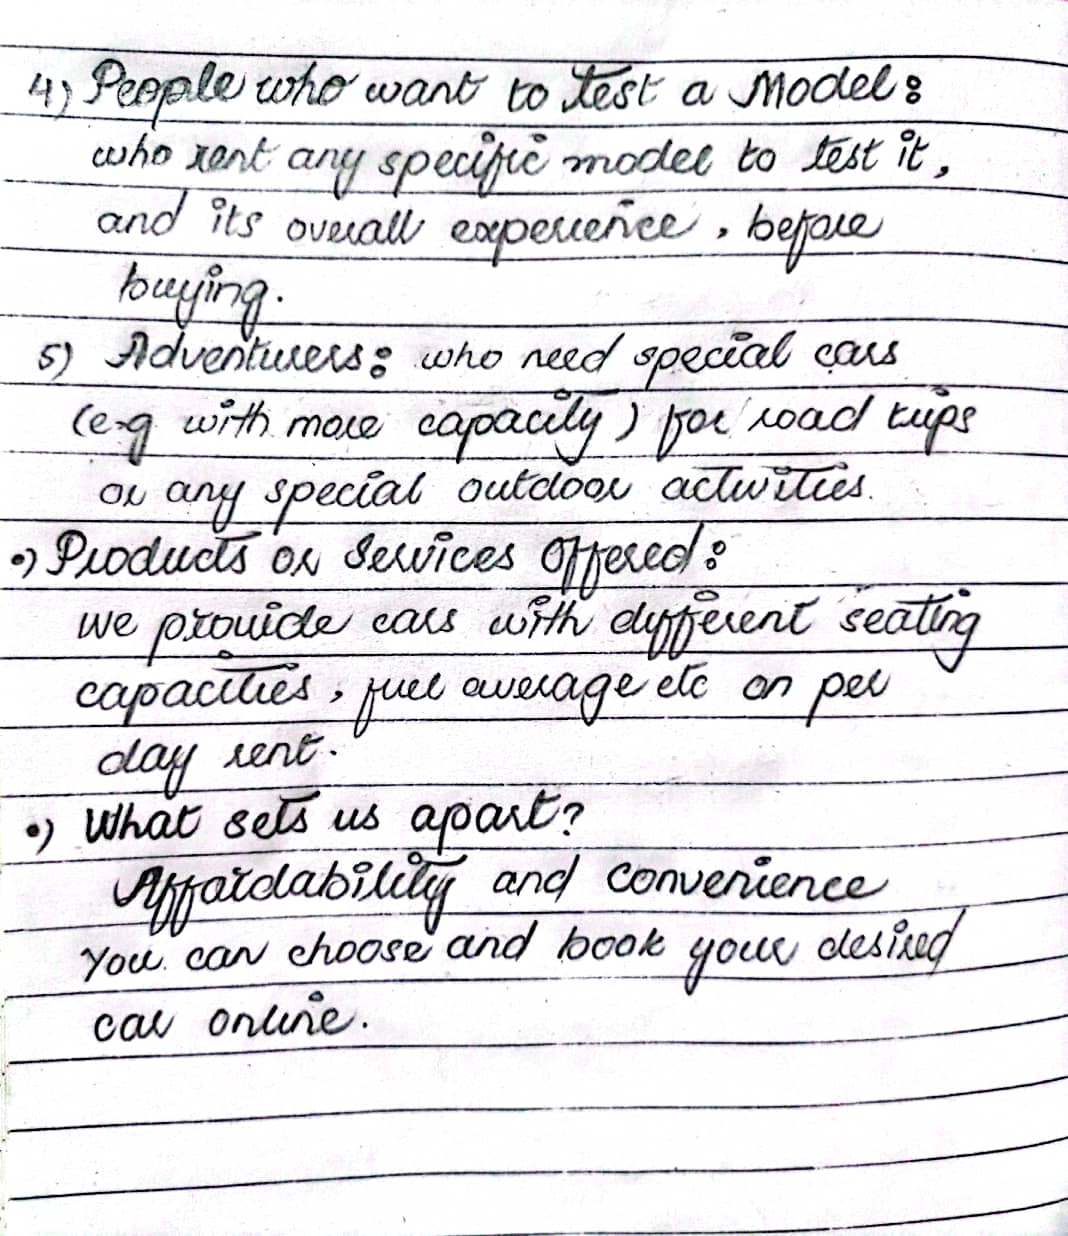 4) People who want to test a Model:
who rent any specific model to test it,
and its overall experience, before
buying.
5) Adventurers: who need special cars
(e-g with more capacity) for road trips
or any special outdoor activities.
•) Products or Services Offered:
we provide cars with different seating
capacities, fuel average etc on per
day rent.
•) What sets us apart?
Affordability and convenience
You can choose and book your desired
car online.